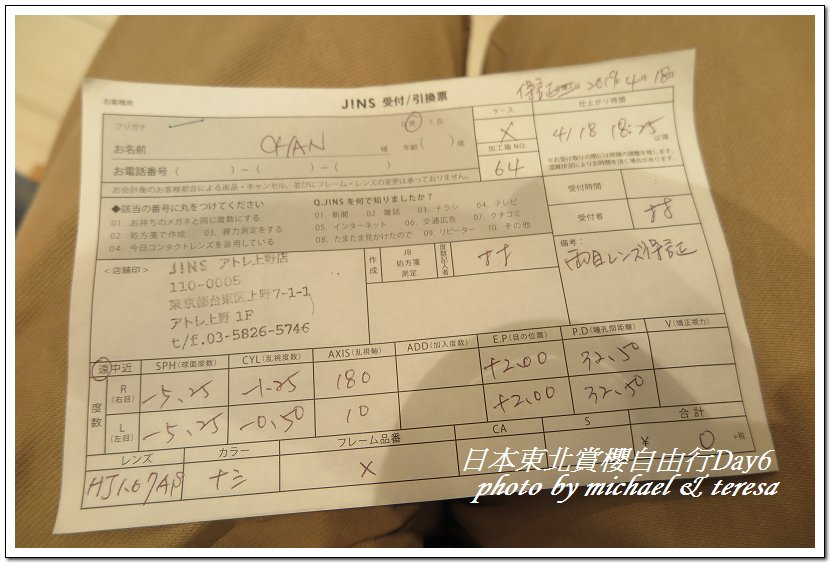 お客様用
J!NS 受付/引換票
保証 2019年4月18日
フリガナ
男 女
ケース
仕上がり時間
お名前 CHAN 様 年齢( )歳
X
4/18 18:25 以降
お電話番号 ( ) - ( ) - ( )
加工箱NO.
64
お会計後のお客様都合による返品・キャンセル、並びにフレーム・レンズの変更は承っておりません。
◆該当の番号に丸をつけてください
01. お持ちのメガネと同じ度数にする
02. 処方箋で作成 03. 視力測定をする
04. 今日コンタクトレンズを装用している
Q.JINSを何で知りましたか?
01. 新聞 02. 雑誌 03. チラシ 04. テレビ
05. インターネット 06. 交通広告 07. クチコミ
08. たまたま見かけたので 09. リピーター 10. その他
受付時間 :
受付者
<店舗印>
J!NS アトレ上野店
110-0005
東京都台東区上野7-1-1
アトレ上野 1F
t/f.03-5826-5746
作成
JB
処方箋
測定
度数記入者
備考:
両目レンズ保証
遠中近 SPH(球面度数) CYL(乱視度数) AXIS(乱視軸) ADD(加入度数) E.P(目の位置) P.D(瞳孔間距離) V(矯正視力)
度数
R(右目) -5.25 -1.25 180 +2.00 32.50
L(左目) -5.25 -0.50 10 +2.00 32.50
レンズ カラー フレーム品番 CA S 合計
ナシ X ¥ 0 +税
日本東北賞櫻自由行Day6
photo by michael & teresa